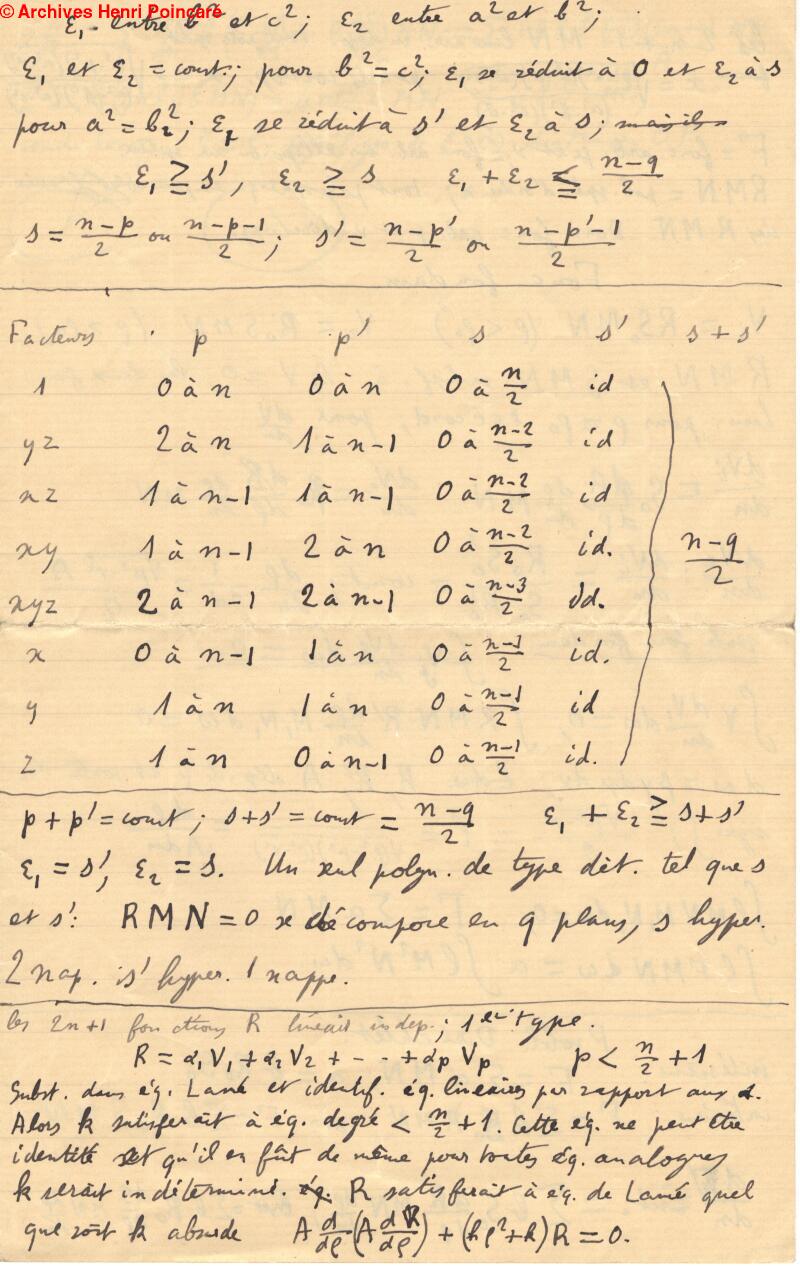 © Archives Henri Poincaré
ε₁ entre b² et c²; ε₂ entre a² et b²;
ε₁ et ε₂ = const.; pour b² = c²; ε₁ se réduit à 0 et ε₂ à s
pour a² = b²; ε₁ se réduit à s' et ε₂ à s; mais ils
ε₁ ≧ s', ε₂ ≧ s ε₁ + ε₂ ≦ (n-q)/2
s = (n-p)/2 ou (n-p-1)/2; s' = (n-p')/2 ou (n-p'-1)/2
Facteurs p p' s s' s+s'
1 0 à n 0 à n 0 à n/2 id
yz 2 à n 1 à n-1 0 à (n-2)/2 id
xz 1 à n-1 1 à n-1 0 à (n-2)/2 id
xy 1 à n-1 2 à n 0 à (n-2)/2 id. (n-q)/2
xyz 2 à n-1 2 à n-1 0 à (n-3)/2 id.
x 0 à n-1 1 à n 0 à (n-1)/2 id.
y 1 à n 1 à n 0 à (n-1)/2 id
z 1 à n 0 à n-1 0 à (n-1)/2 id.
p + p' = const; s+s' = const = (n-q)/2 ε₁ + ε₂ ≧ s+s'
ε₁ = s', ε₂ = s. Un seul polyn. de type dét. tel que s
et s': RMN = 0 se décompose en q plans, s hyper.
2 nap. s' hyper. 1 nappe.
les 2n+1 fonctions R linéair indep.; 1er type.
R = α₁V₁ + α₂V₂ + -- + αpVp p < n/2 + 1
Subst. dans éq. Lamé et identif. éq. linéaires par rapport aux α.
Alors k satisferait à éq. degré < n/2 + 1. Cette éq. ne peut être
identité et qu'il en fût de même pour toutes éq. analogues
k serait indéterminé. éq. R satisferait à éq. de Lamé quel
que soit k absurde A d/dρ (A dR/dρ) + (hρ²+k)R = 0.